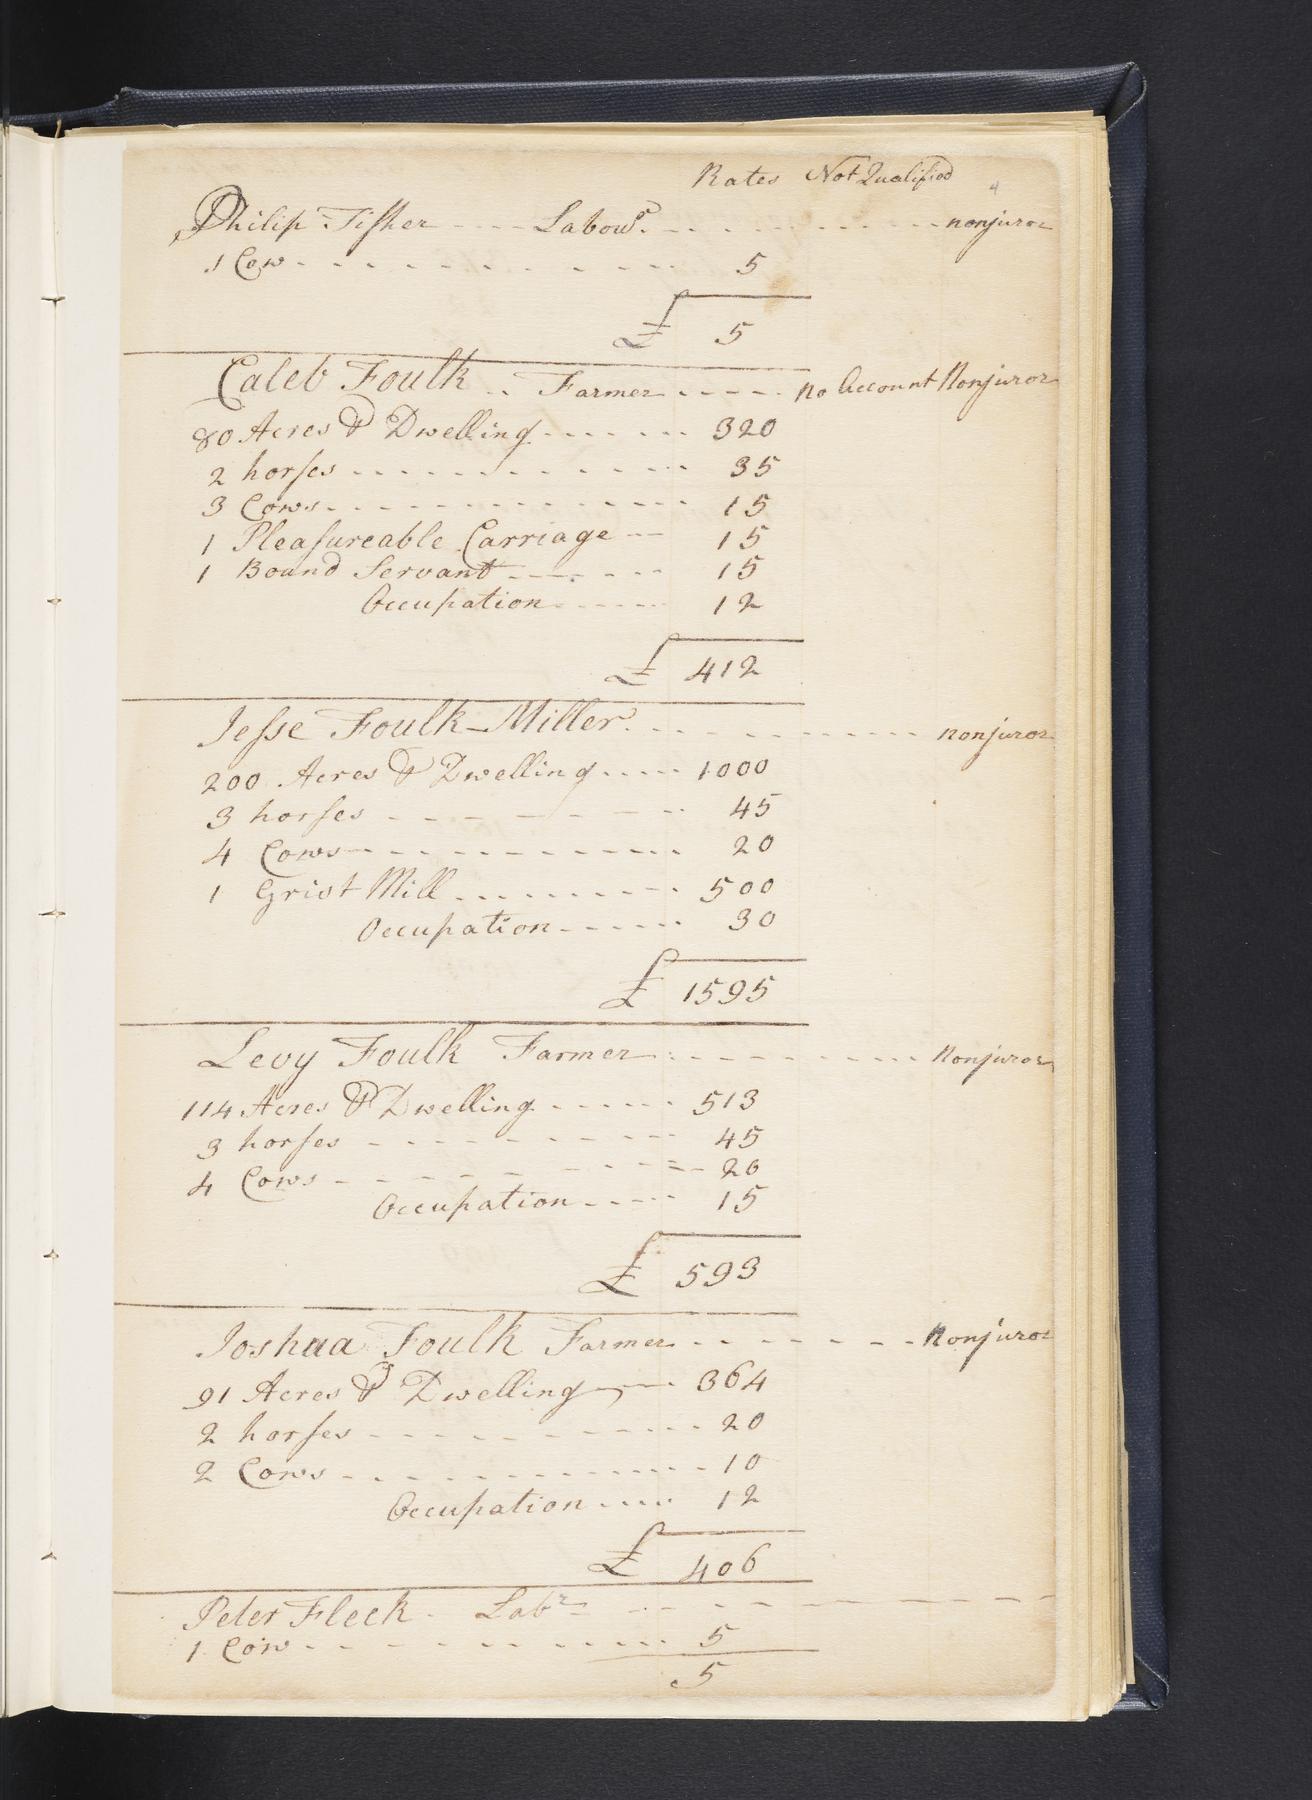 Rates Not Qualified
4
Philip Fisher Labour. nonjuror
1 Cow 5
£ 5
Caleb Foulk Farmer No Account Nonjuror
80 Acres & Dwelling 320
2 horses 35
3 Cows 15
1 Pleasureable Carriage 15
1 Bound Servant 15
Occupation 12
£ 412
Jesse Foulk Miller nonjuror
200 Acres & Dwelling 1000
3 horses 45
4 Cows 20
1 Grist Mill 500
Occupation 30
£ 1595
Levy Foulk Farmer Nonjuror
114 Acres & Dwelling 513
3 horses 45
4 Cows 20
Occupation 15
£ 593
Joshua Foulk Farmer Nonjuror
91 Acres & Dwelling 364
2 horses 20
2 Cows 10
Occupation 12
£ 406
Peter Fleck Labr
1 Cow 5
5